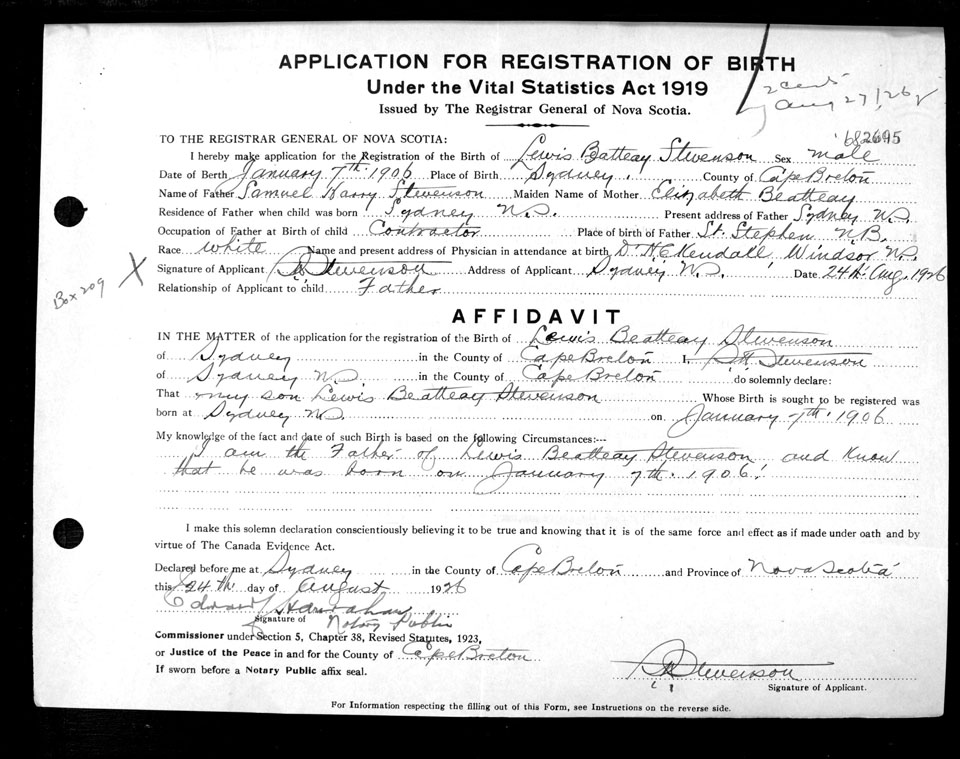 APPLICATION FOR REGISTRATION OF BIRTH
Under the Vital Statistics Act 1919
Issued by The Registrar General of Nova Scotia.
Aug 27/26
TO THE REGISTRAR GENERAL OF NOVA SCOTIA:
I hereby make application for the Registration of the Birth of Lewis Beatteay Stevenson Sex male
Date of Birth January 7th 1906 Place of Birth Sydney County of Cape Breton
Name of Father Samuel Harry Stevenson Maiden Name of Mother Elizabeth Beatteay
Residence of Father when child was born Sydney N.S. Present address of Father Sydney N.S.
Occupation of Father at Birth of child Contractor Place of birth of Father St. Stephen N.B.
Race white Name and present address of Physician in attendance at birth Dr H.E. Kendall, Windsor N.S.
Signature of Applicant S.H. Stevenson Address of Applicant Sydney N.S. Date 24th Aug. 1926
Relationship of Applicant to child Father
Box 209
X
AFFIDAVIT
IN THE MATTER of the application for the registration of the Birth of Lewis Beatteay Stevenson
of Sydney in the County of Cape Breton I, S.H. Stevenson
of Sydney N.S. in the County of Cape Breton do solemnly declare:
That my son Lewis Beatteay Stevenson Whose Birth is sought to be registered was
born at Sydney N.S. on January 7th. 1906
My knowledge of the fact and date of such Birth is based on the following Circumstances:--
I am the Father of Lewis Beatteay Stevenson and know
that he was born on January 7th. 1906.
I make this solemn declaration conscientiously believing it to be true and knowing that it is of the same force and effect as if made under oath and by
virtue of The Canada Evidence Act.
Declared before me at Sydney in the County of Cape Breton and Province of Nova Scotia
this 24th day of August 1926
Signature of Notary Public
Commissioner under Section 5, Chapter 38, Revised Statutes, 1923,
or Justice of the Peace in and for the County of Cape Breton
If sworn before a Notary Public affix seal.
S.H. Stevenson
Signature of Applicant.
For Information respecting the filling out of this Form, see Instructions on the reverse side.